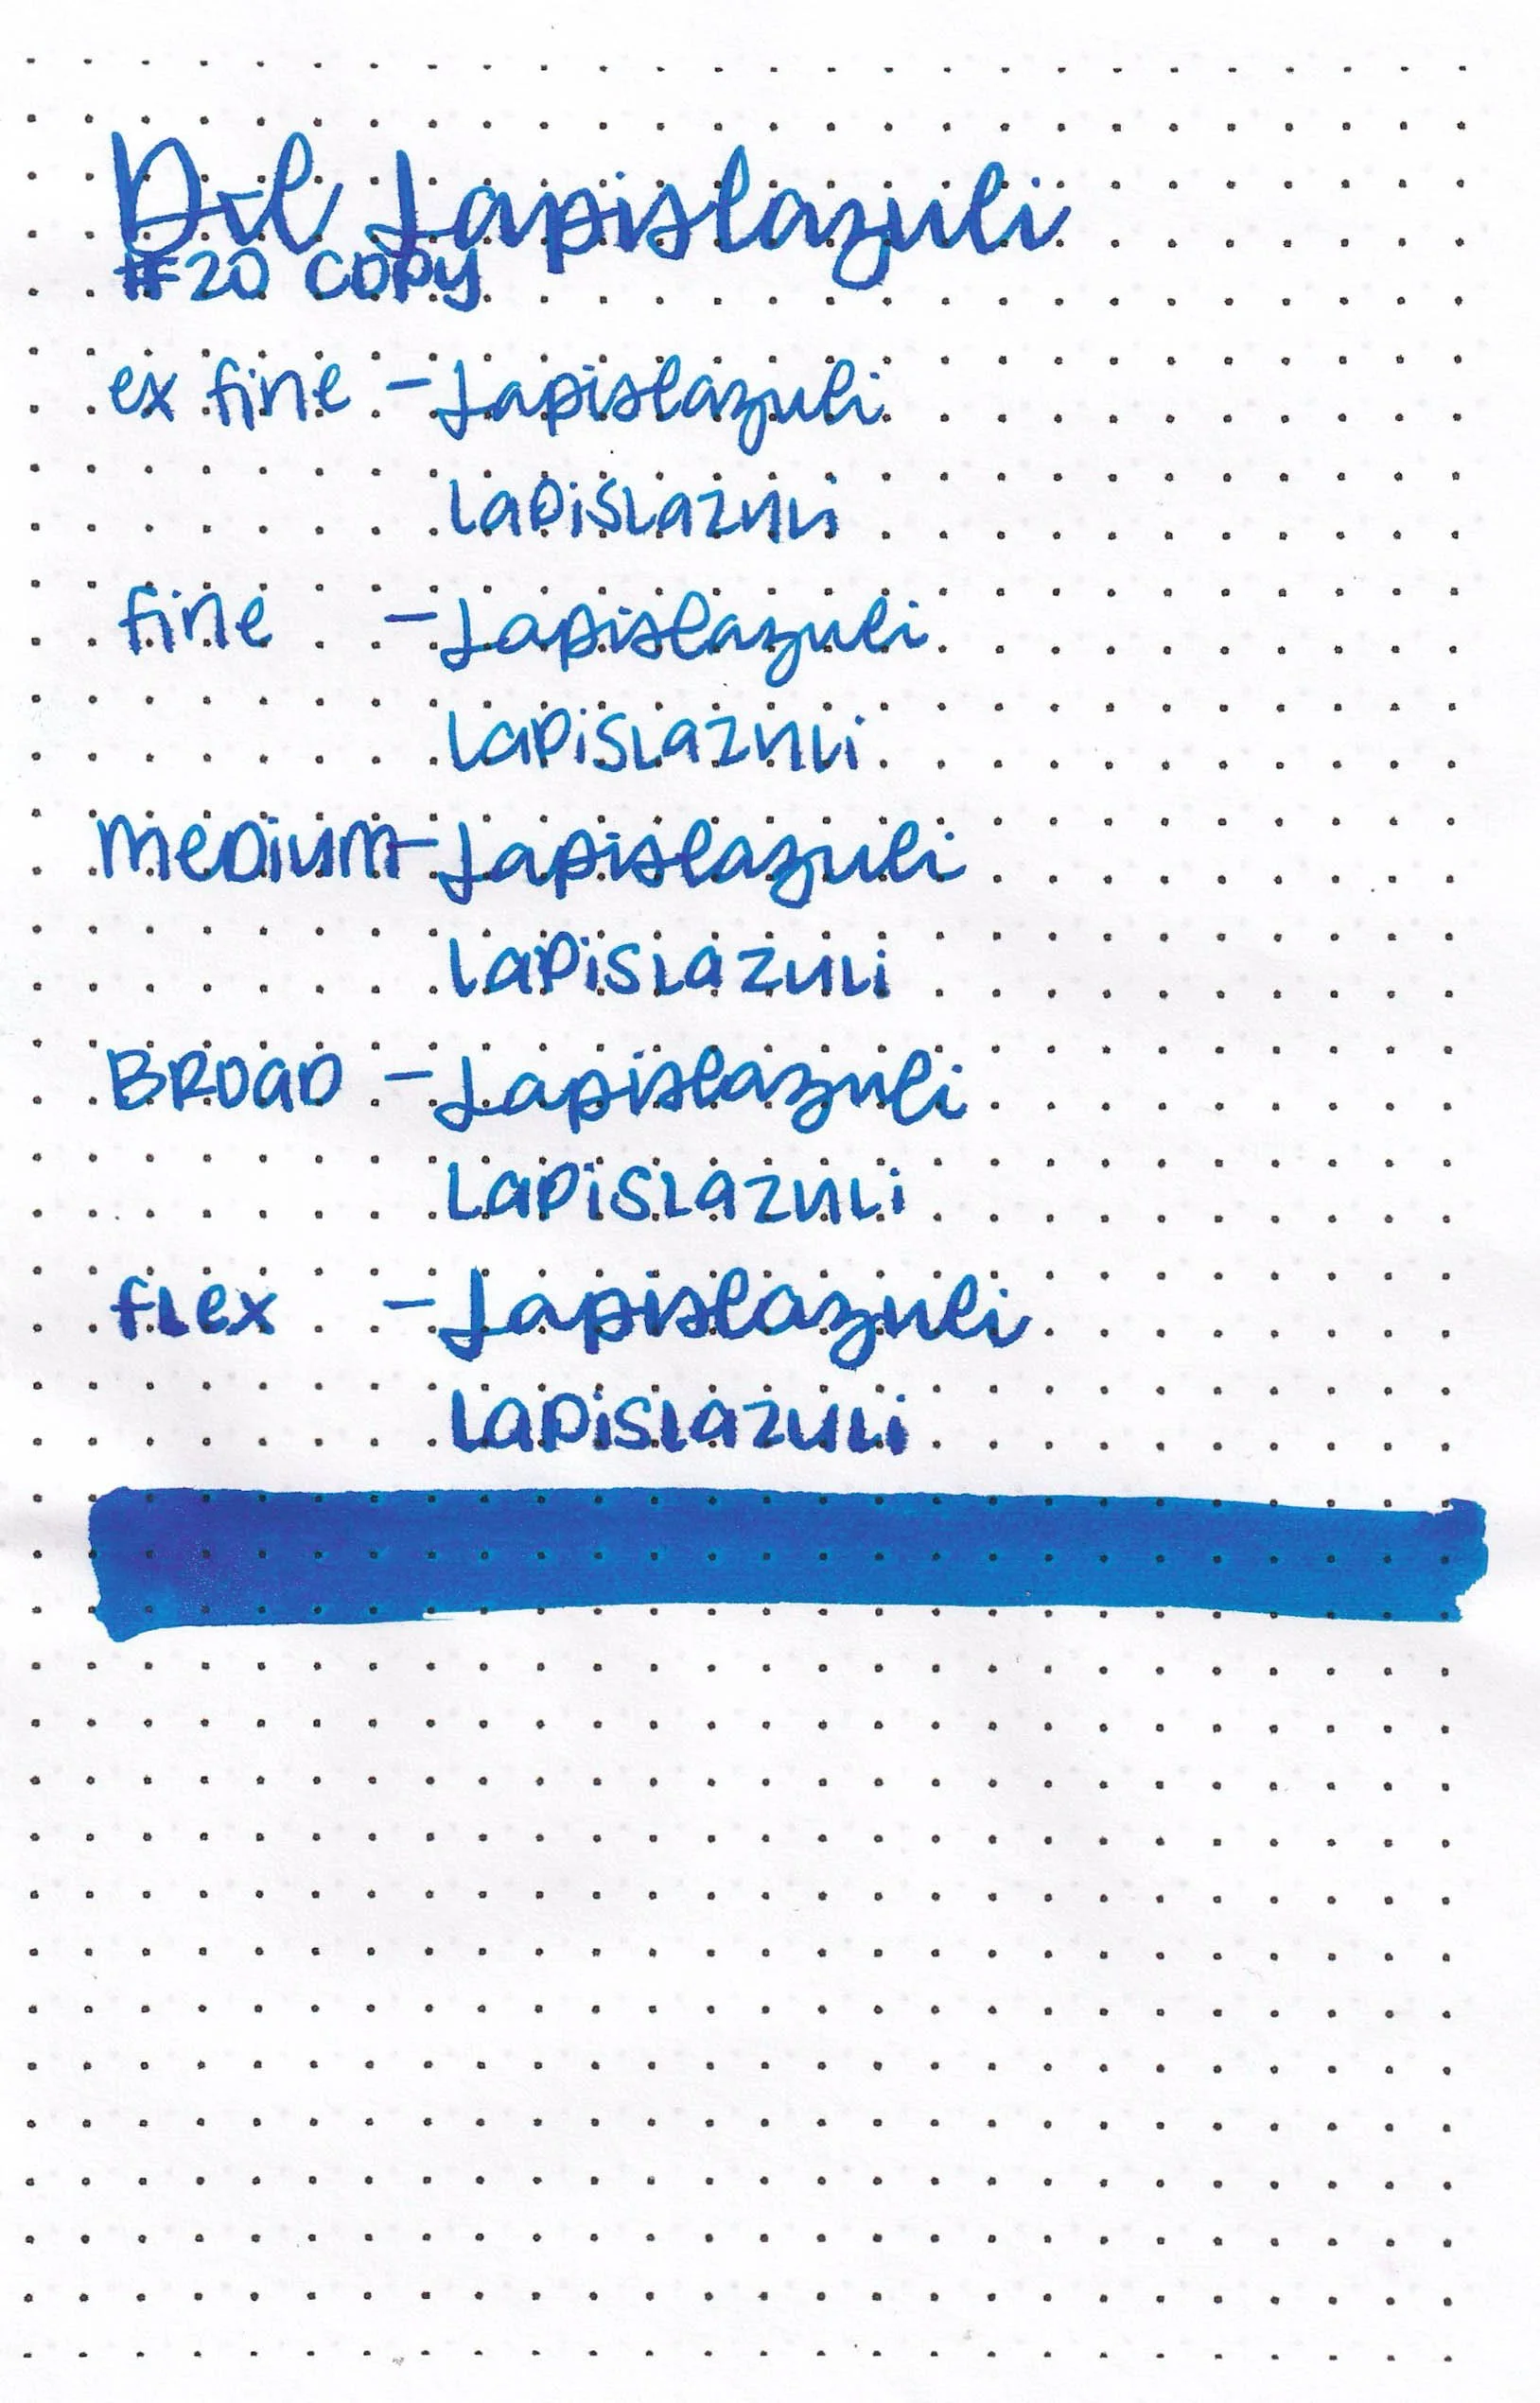 Dil Lapislazuli
#20 COPY
ex fine - Lapislazuli
Lapislazuli
fine - Lapislazuli
Lapislazuli
Medium - Lapislazuli
Lapislazuli
BROAD - Lapislazuli
Lapislazuli
flex - Lapislazuli
Lapislazuli